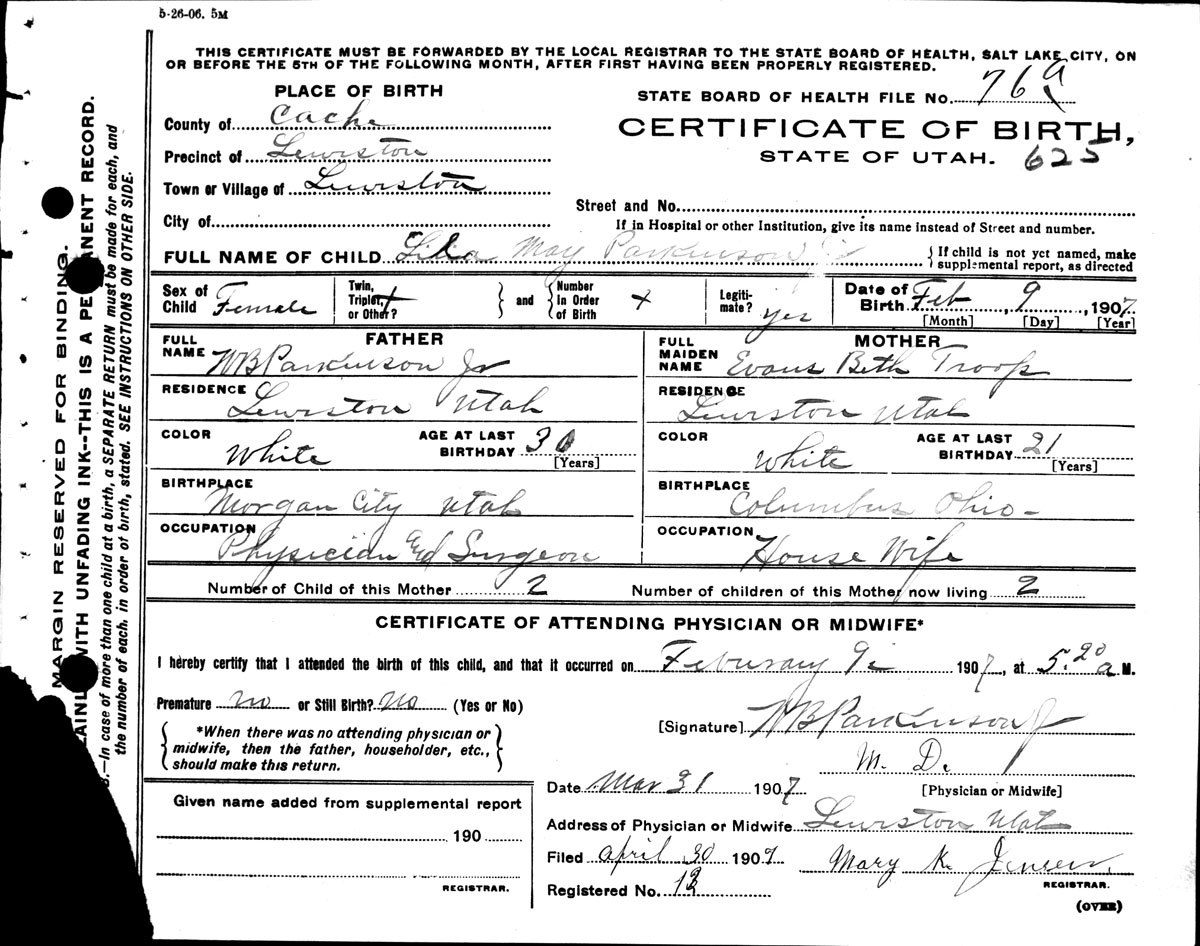 5-26-06. 5M
THIS CERTIFICATE MUST BE FORWARDED BY THE LOCAL REGISTRAR TO THE STATE BOARD OF HEALTH, SALT LAKE CITY, ON
OR BEFORE THE 5TH OF THE FOLLOWING MONTH, AFTER FIRST HAVING BEEN PROPERLY REGISTERED.
PLACE OF BIRTH
STATE BOARD OF HEALTH FILE No. 769
County of Cache
CERTIFICATE OF BIRTH,
Precinct of Lewiston
STATE OF UTAH. 625
Town or Village of Lewiston
Street and No.
City of
If in Hospital or other Institution, give its name instead of Street and number.
FULL NAME OF CHILD May Parkinson
{ If child is not yet named, make
supplemental report, as directed
Sex of Child Female
Twin, Triplet, or Other? +
and Number In Order of Birth +
Legiti-mate? yes
Date of Birth Feb 9, 1907
[Month] [Day] [Year]
FATHER
FULL NAME WB Parkinson Jr
RESIDENCE Lewiston Utah
COLOR White
AGE AT LAST BIRTHDAY 30 [Years]
BIRTHPLACE Morgan City Utah
OCCUPATION Physician and Surgeon
MOTHER
FULL MAIDEN NAME Evans Beth Troop
RESIDENCE Lewiston Utah
COLOR White
AGE AT LAST BIRTHDAY 21 [Years]
BIRTHPLACE Columbus Ohio -
OCCUPATION House Wife
Number of Child of this Mother 2
Number of children of this Mother now living 2
CERTIFICATE OF ATTENDING PHYSICIAN OR MIDWIFE*
I hereby certify that I attended the birth of this child, and that it occurred on 9 1907, at 5.20 a M.
Premature no or Still Birth? No (Yes or No)
[Signature] WB Parkinson Jr
M. D.
[Physician or Midwife]
*When there was no attending physician or
midwife, then the father, householder, etc.,
should make this return.
Date Mar 31 1907
Given name added from supplemental report
Address of Physician or Midwife Lewiston Utah
190
Filed April 30 1907 Mary K. Jensen
REGISTRAR.
REGISTRAR.
Registered No.
(OVER)
MARGIN RESERVED FOR BINDING.
WITH UNFADING INK--THIS IS A RECORD.
—In case of more than one child at a birth, a SEPARATE RETURN must be made for each, and
the number of each, in order of birth, stated. SEE INSTRUCTIONS ON OTHER SIDE.